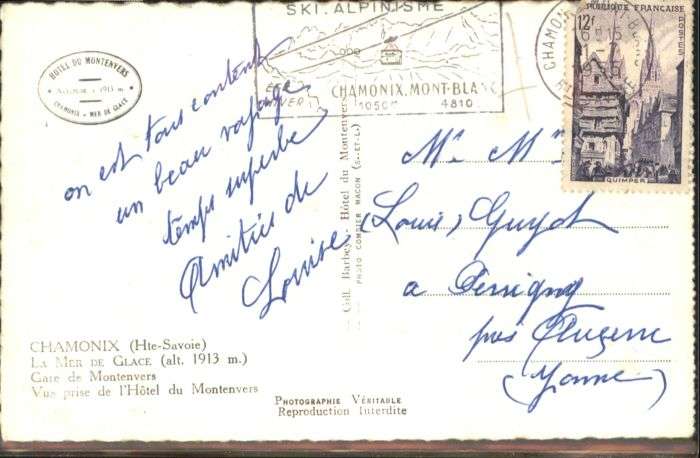 SKI. ALPINISME
CHAMONIX. MONT-BLANC
4810
12F
POSTES
QUIMPER
HOTEL DU MONTENVERS
CHAMONIX - MER DE GLACE
on est tous content
un beau voyage
temps superbe
Amitiés de
Louise
Coll. Barbey - Hôtel du Montenvers
PHOTO COMBIER MACON (S.-ET-L.)
Mr Mme
(Louis) Guyot
a Perrigny
près Auxerre
(Yonne)
CHAMONIX (Hte-Savoie)
LA MER DE GLACE (alt. 1913 m.)
Gare de Montenvers
Vue prise de l'Hôtel du Montenvers
PHOTOGRAPHIE VÉRITABLE
Reproduction Interdite